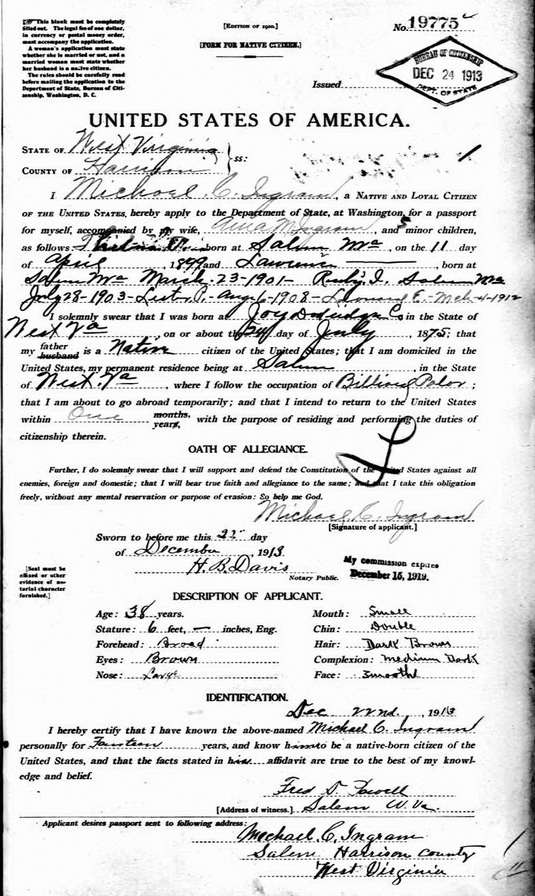 ☞ This blank must be completely
filled out. The legal fee of one dollar,
in currency or postal money order,
must accompany the application.
A woman's application must state
whether she is married or not, and a
married woman must state whether
her husband is a native citizen.
The rules should be carefully read
before mailing the application to the
Department of State, Bureau of Citi-
zenship, Washington, D. C.
[EDITION OF 1910.]
[FORM FOR NATIVE CITIZEN.]
No. 19775
Issued
BUREAU OF CITIZENSHIP
DEC 24 1913
DEPT. OF STATE
UNITED STATES OF AMERICA.
STATE OF West Virginia
COUNTY OF Harrison ss:
I Michael C. Ingram, a NATIVE AND LOYAL CITIZEN
OF THE UNITED STATES, hereby apply to the Department of State, at Washington, for a passport
for myself, accompanied by my wife, Anna M Ingram, and 5 minor children,
as follows: born at Salem, on the 11 day
of April 1899 and Lawrence born at
Salem March-23-1901- Ruby I. Salem
July 28-1903- Aug 6-1908- Leonard E- Mch-4-1912
I solemnly swear that I was born at Joy Doddridge Co in the State of
West Va, on or about the day of July 1875; that
my father husband is a Native citizen of the United States; that I am domiciled in the
United States, my permanent residence being at Salem, in the State
of West. Va, where I follow the occupation of;
that I am about to go abroad temporarily; and that I intend to return to the United States
within One months. years, with the purpose of residing and performing the duties of
citizenship therein.
OATH OF ALLEGIANCE.
Further, I do solemnly swear that I will support and defend the Constitution of the United States against all
enemies, foreign and domestic; that I will bear true faith and allegiance to the same; and that I take this obligation
freely, without any mental reservation or purpose of evasion: So help me God.
Michael C. Ingram
[Signature of applicant.]
Sworn to before me this 22 day
of December, 1913
H. B. Davis
Notary Public.
My commission expires
December 15, 1919.
[Seal must be
affixed or other
evidence of no-
tarial character
furnished.]
DESCRIPTION OF APPLICANT.
Age: 38 years. Mouth: Small
Stature: 6 feet, — inches, Eng. Chin: Double
Forehead: Broad Hair: Dark Brown
Eyes: Brown Complexion: Medium Dark
Nose: Large Face: Smooth
IDENTIFICATION.
Dec 22nd, 1913
I hereby certify that I have known the above-named Michael C. Ingram
personally for Fourteen years, and know him to be a native-born citizen of the
United States, and that the facts stated in his affidavit are true to the best of my knowl-
edge and belief.
Fred
[Address of witness.] Salem W. Va.
Applicant desires passport sent to following address:
Michael C. Ingram
Salem, Harrison County
West Virginia